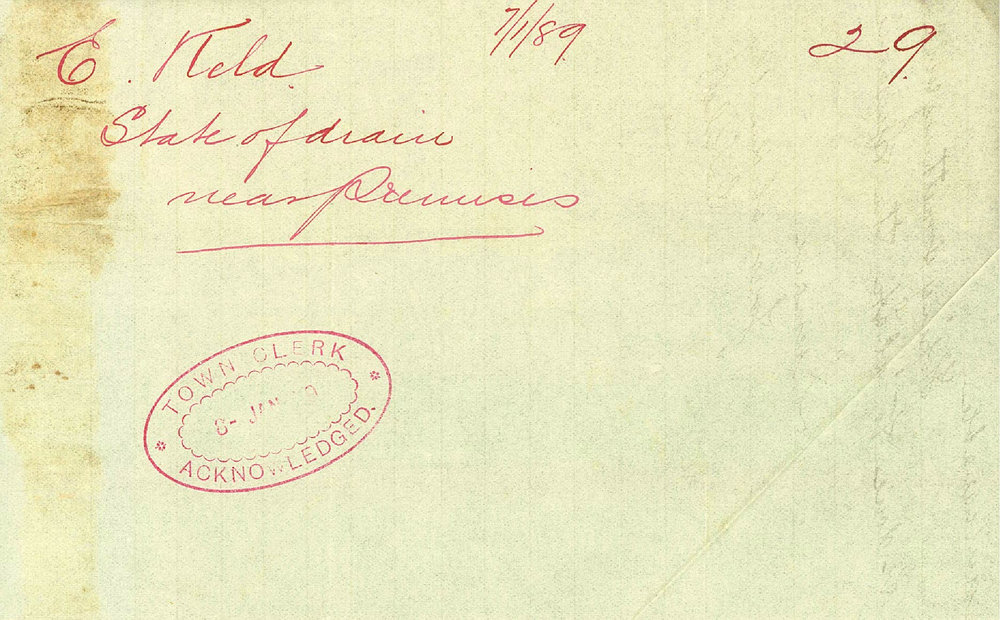 E. Keld. 7/1/89. 29.
State of drain
near Premises
TOWN CLERK
8- JAN 9
ACKNOWLEDGED.